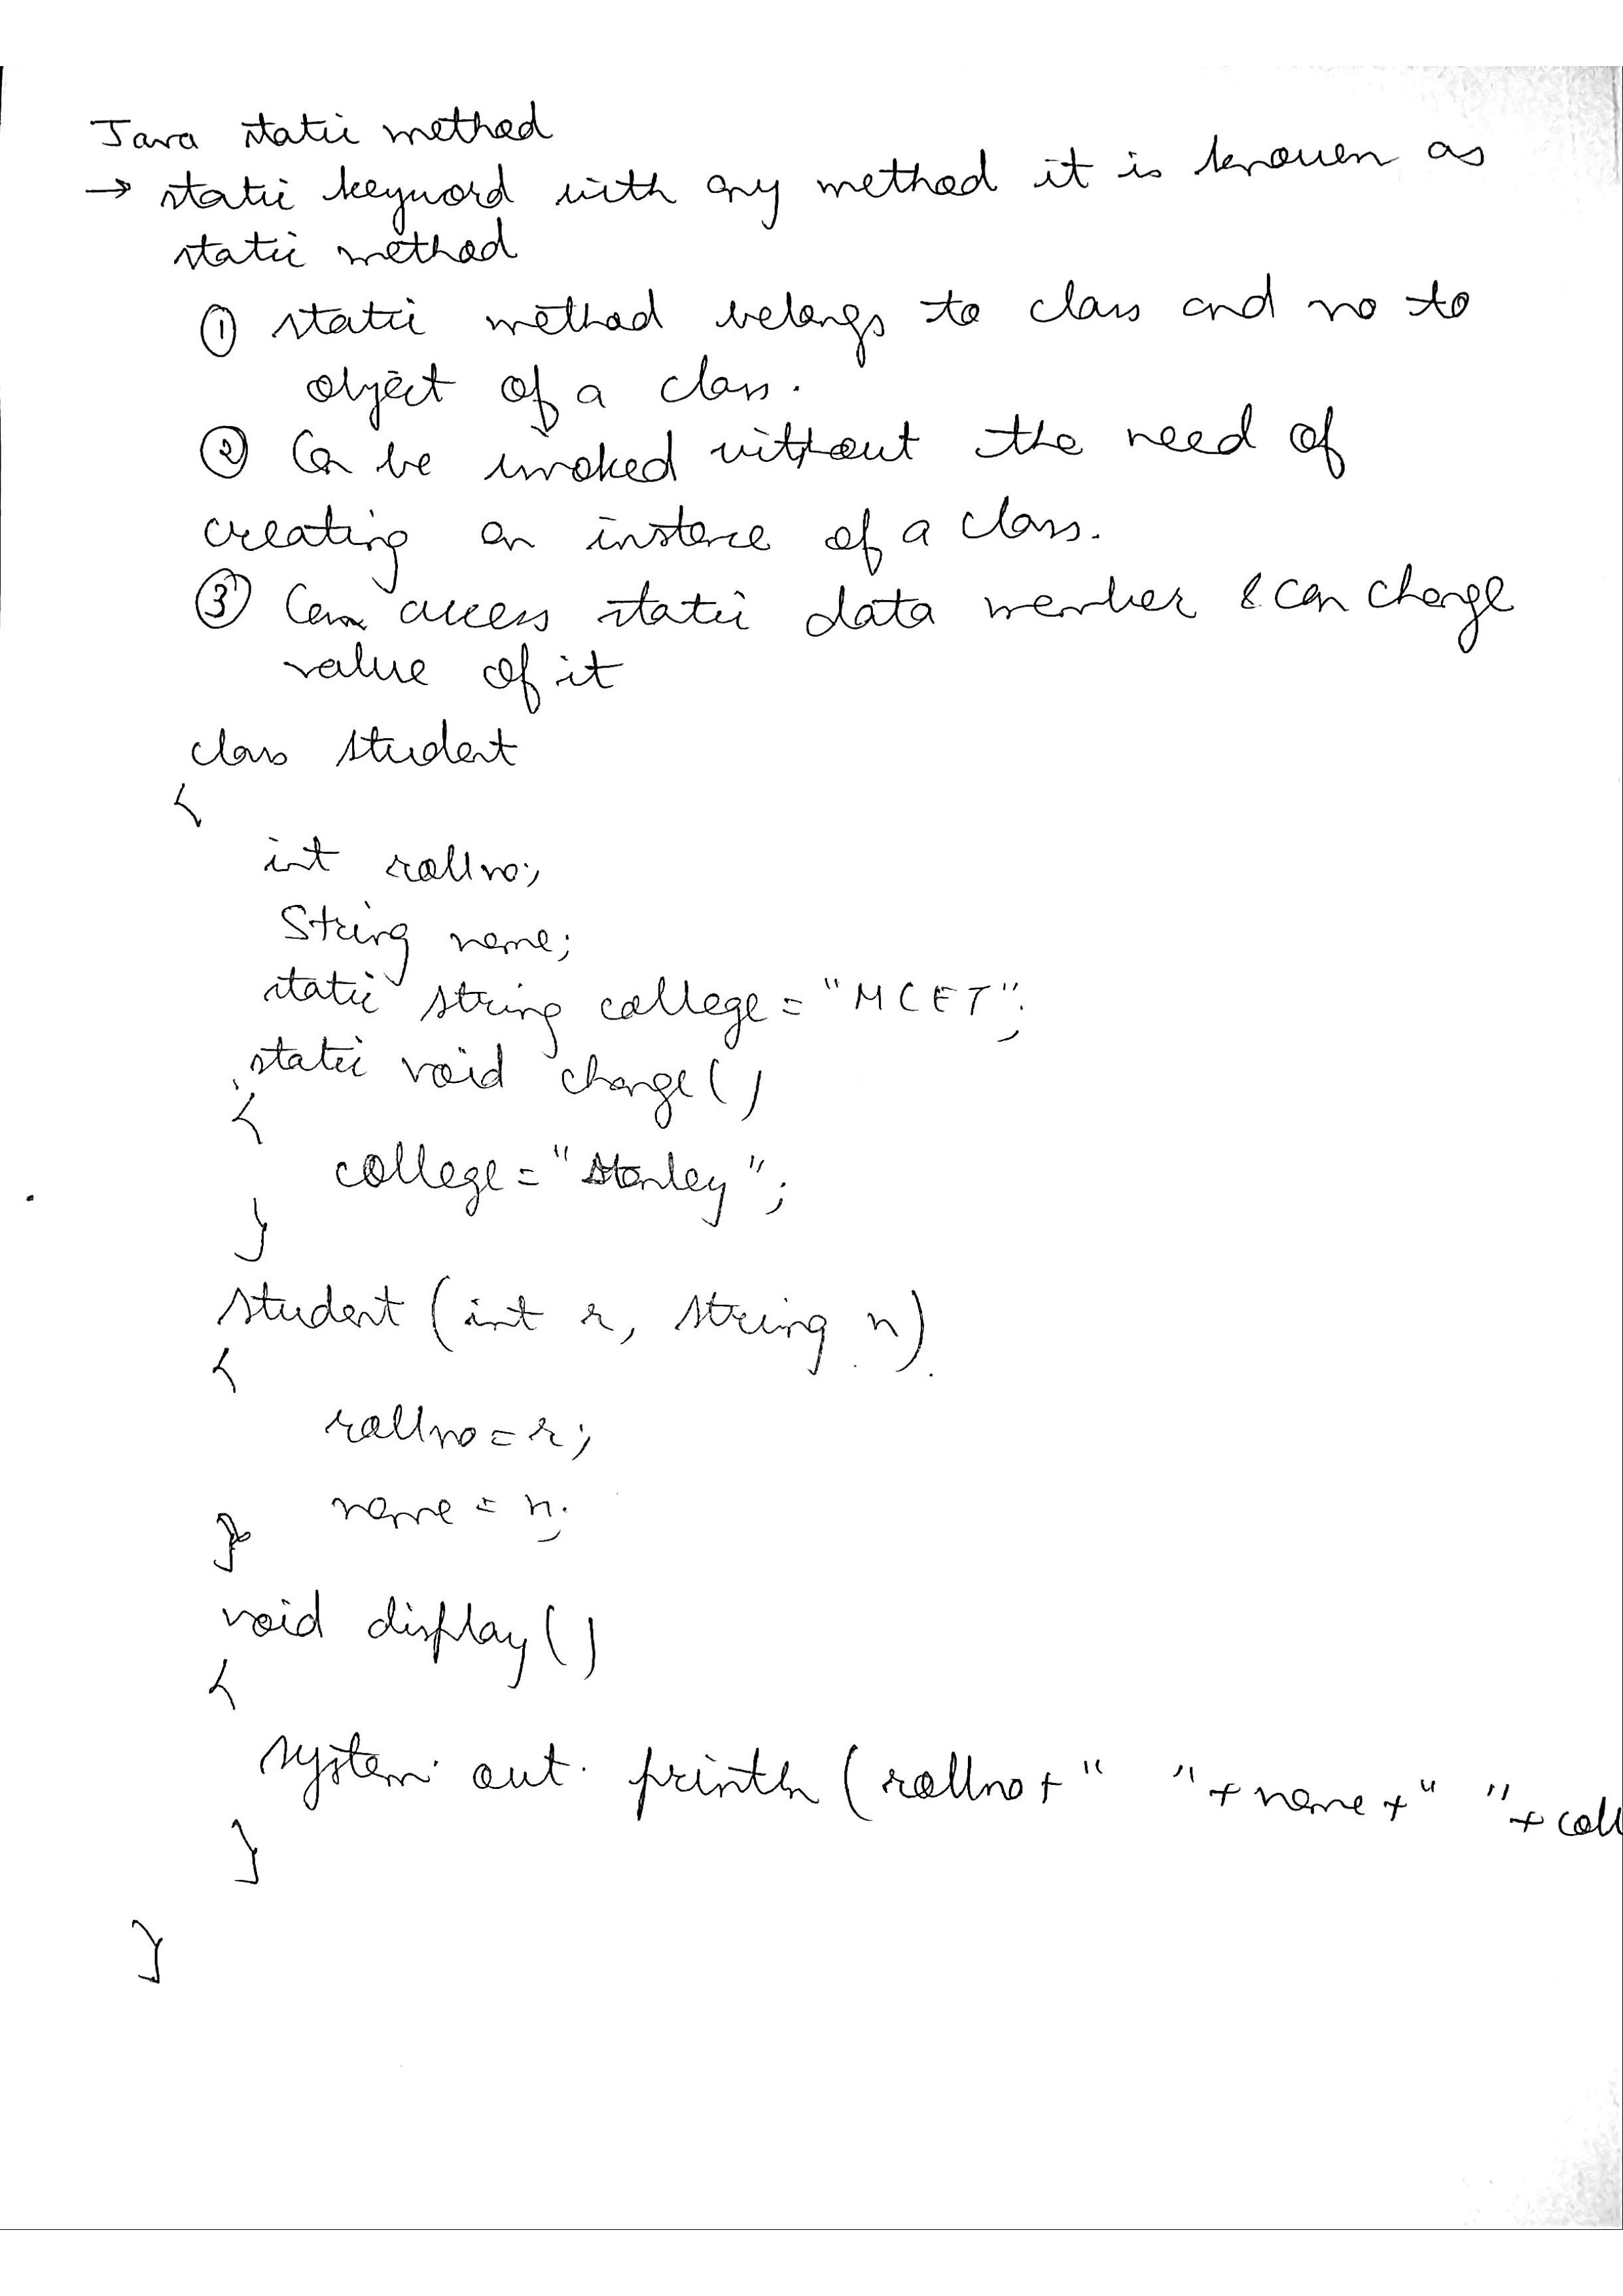 Java static method
→ static keyword with any method it is known as
static method
① static method belongs to class and no to
object of a class.
② Can be invoked without the need of
creating an instance of a class.
③ Can access static data member & can change
value of it
class student
{
int rollno;
String name;
static string college = "MCET";
static void change()
{
college = "Stanley";
}
student (int r, string n)
{
rollno = r;
name = n;
}
void display()
{
system. out. println (rollno + " " + name + " " + coll
}
}